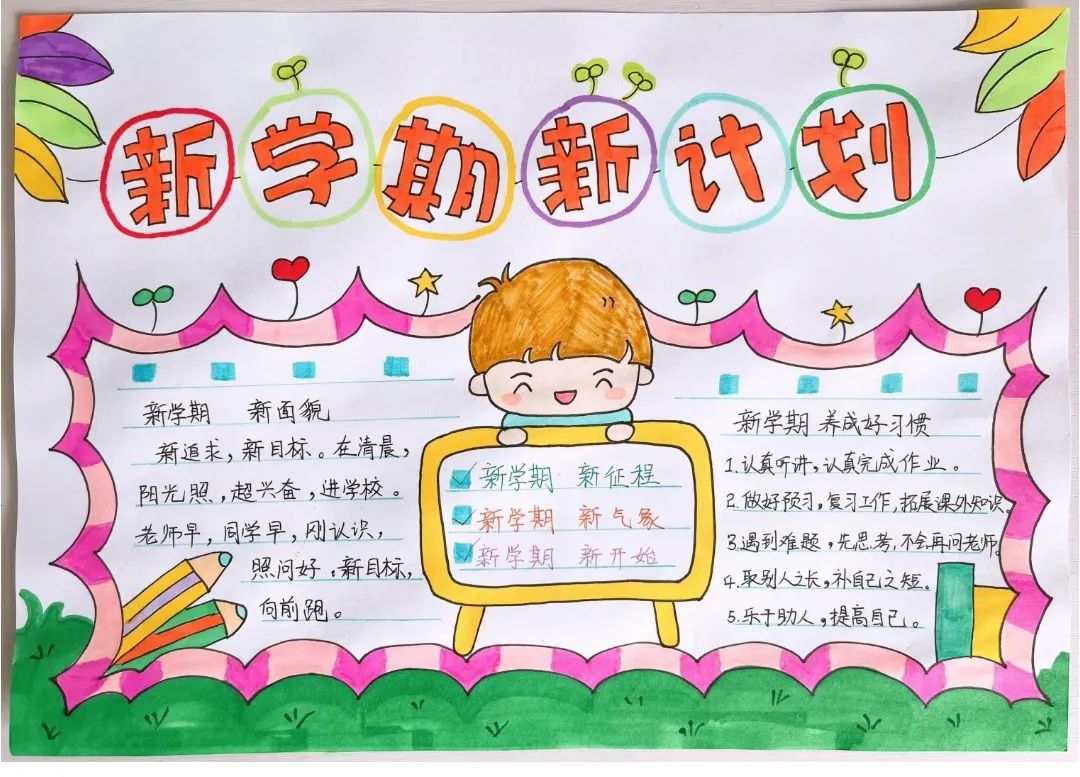 新学期新计划
新学期 新面貌
新追求，新目标。在清晨，
阳光照，超兴奋，进学校。
老师早，同学早，刚认识，
照问好。新目标，
向前跑。
新学期 新征程
新学期 新气象
新学期 新开始
新学期 养成好习惯
1.认真听讲，认真完成作业。
2.做好预习，复习工作，拓展课外知识。
3.遇到难题，先思考，不会再问老师。
4.取别人之长，补自己之短。
5.乐于助人，提高自己。